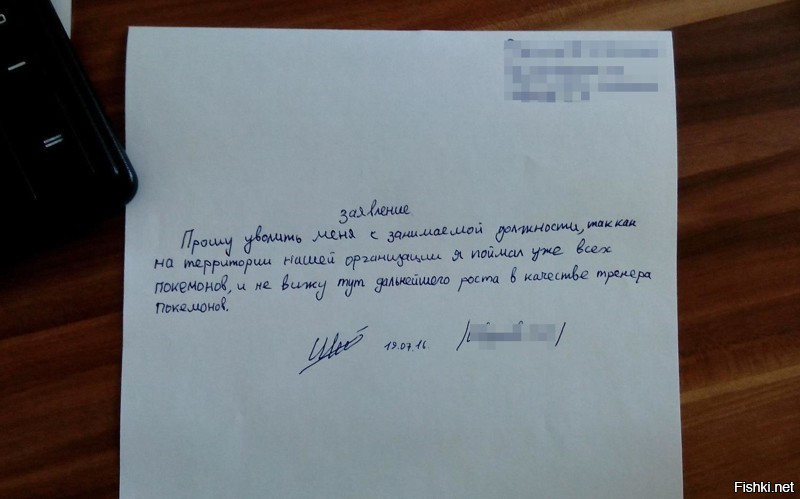 заявление
Прошу уволить меня с занимаемой должности, так как
на территории нашей организации я поймал уже всех
покемонов, и не вижу тут дальнейшего роста в качестве тренера
покемонов.
19.07.16.
Fishki.net